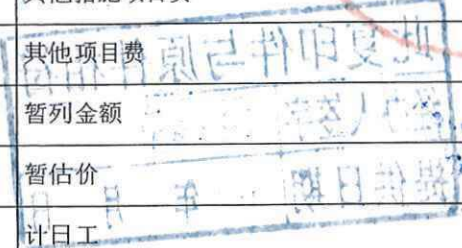 其他措施项目费
其他项目费
暂列金额
暂估价
计日工
此复印件与原件相符
提供日期 年 月 日